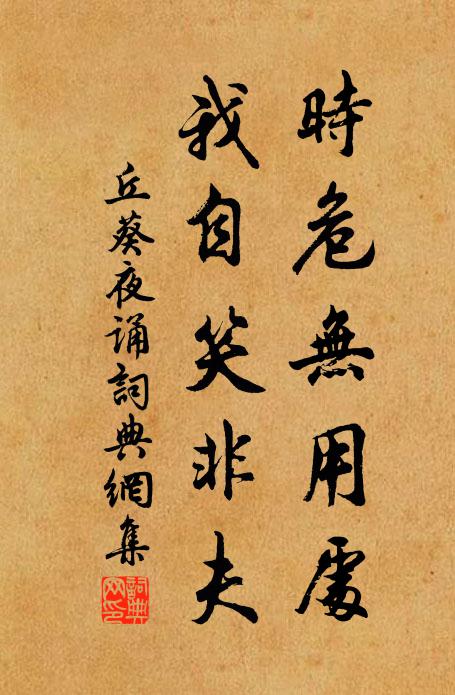 時危無用處
我自笑非夫
丘葵夜誦詞典網集
詞典网印